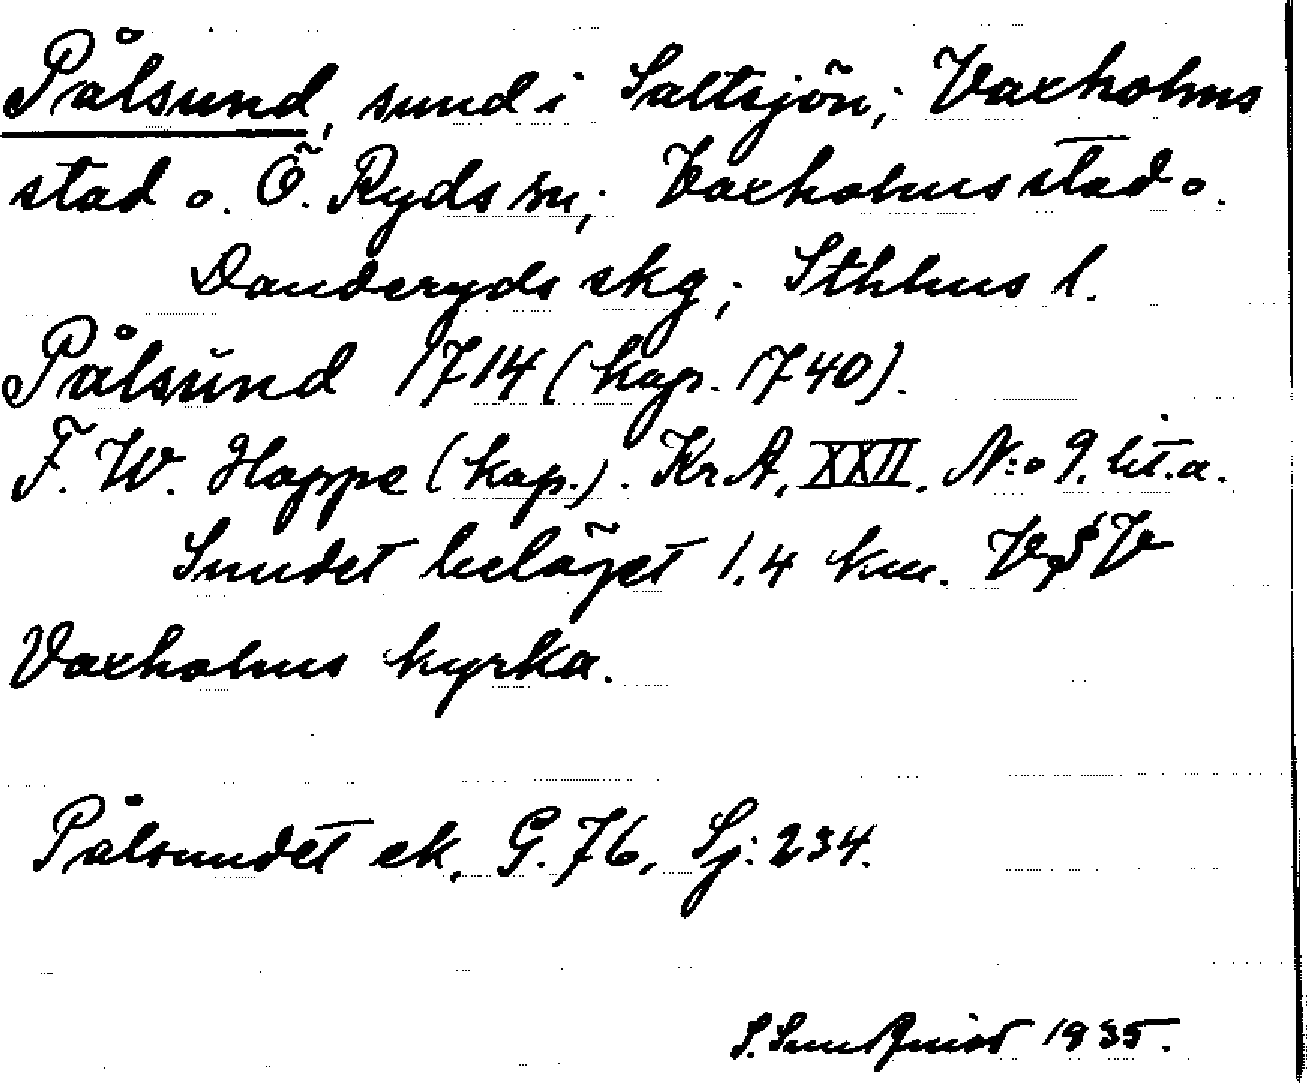 Pålsund, sund i Saltsjön; Vaxholms
stad o. Ö. Ryds sn; Vaxholms stad o.
Danderyds skg; Sthlms l.
Pålsund 1714 (kop. 1740).
F. W. Hoppe (kop.). KrA. XXII. N:o 9. lit. a.
Sundet beläget 1.4 km. V
Vaxholms kyrka.
Pålsundet ek. G. 76, Sj: 234.
1935.